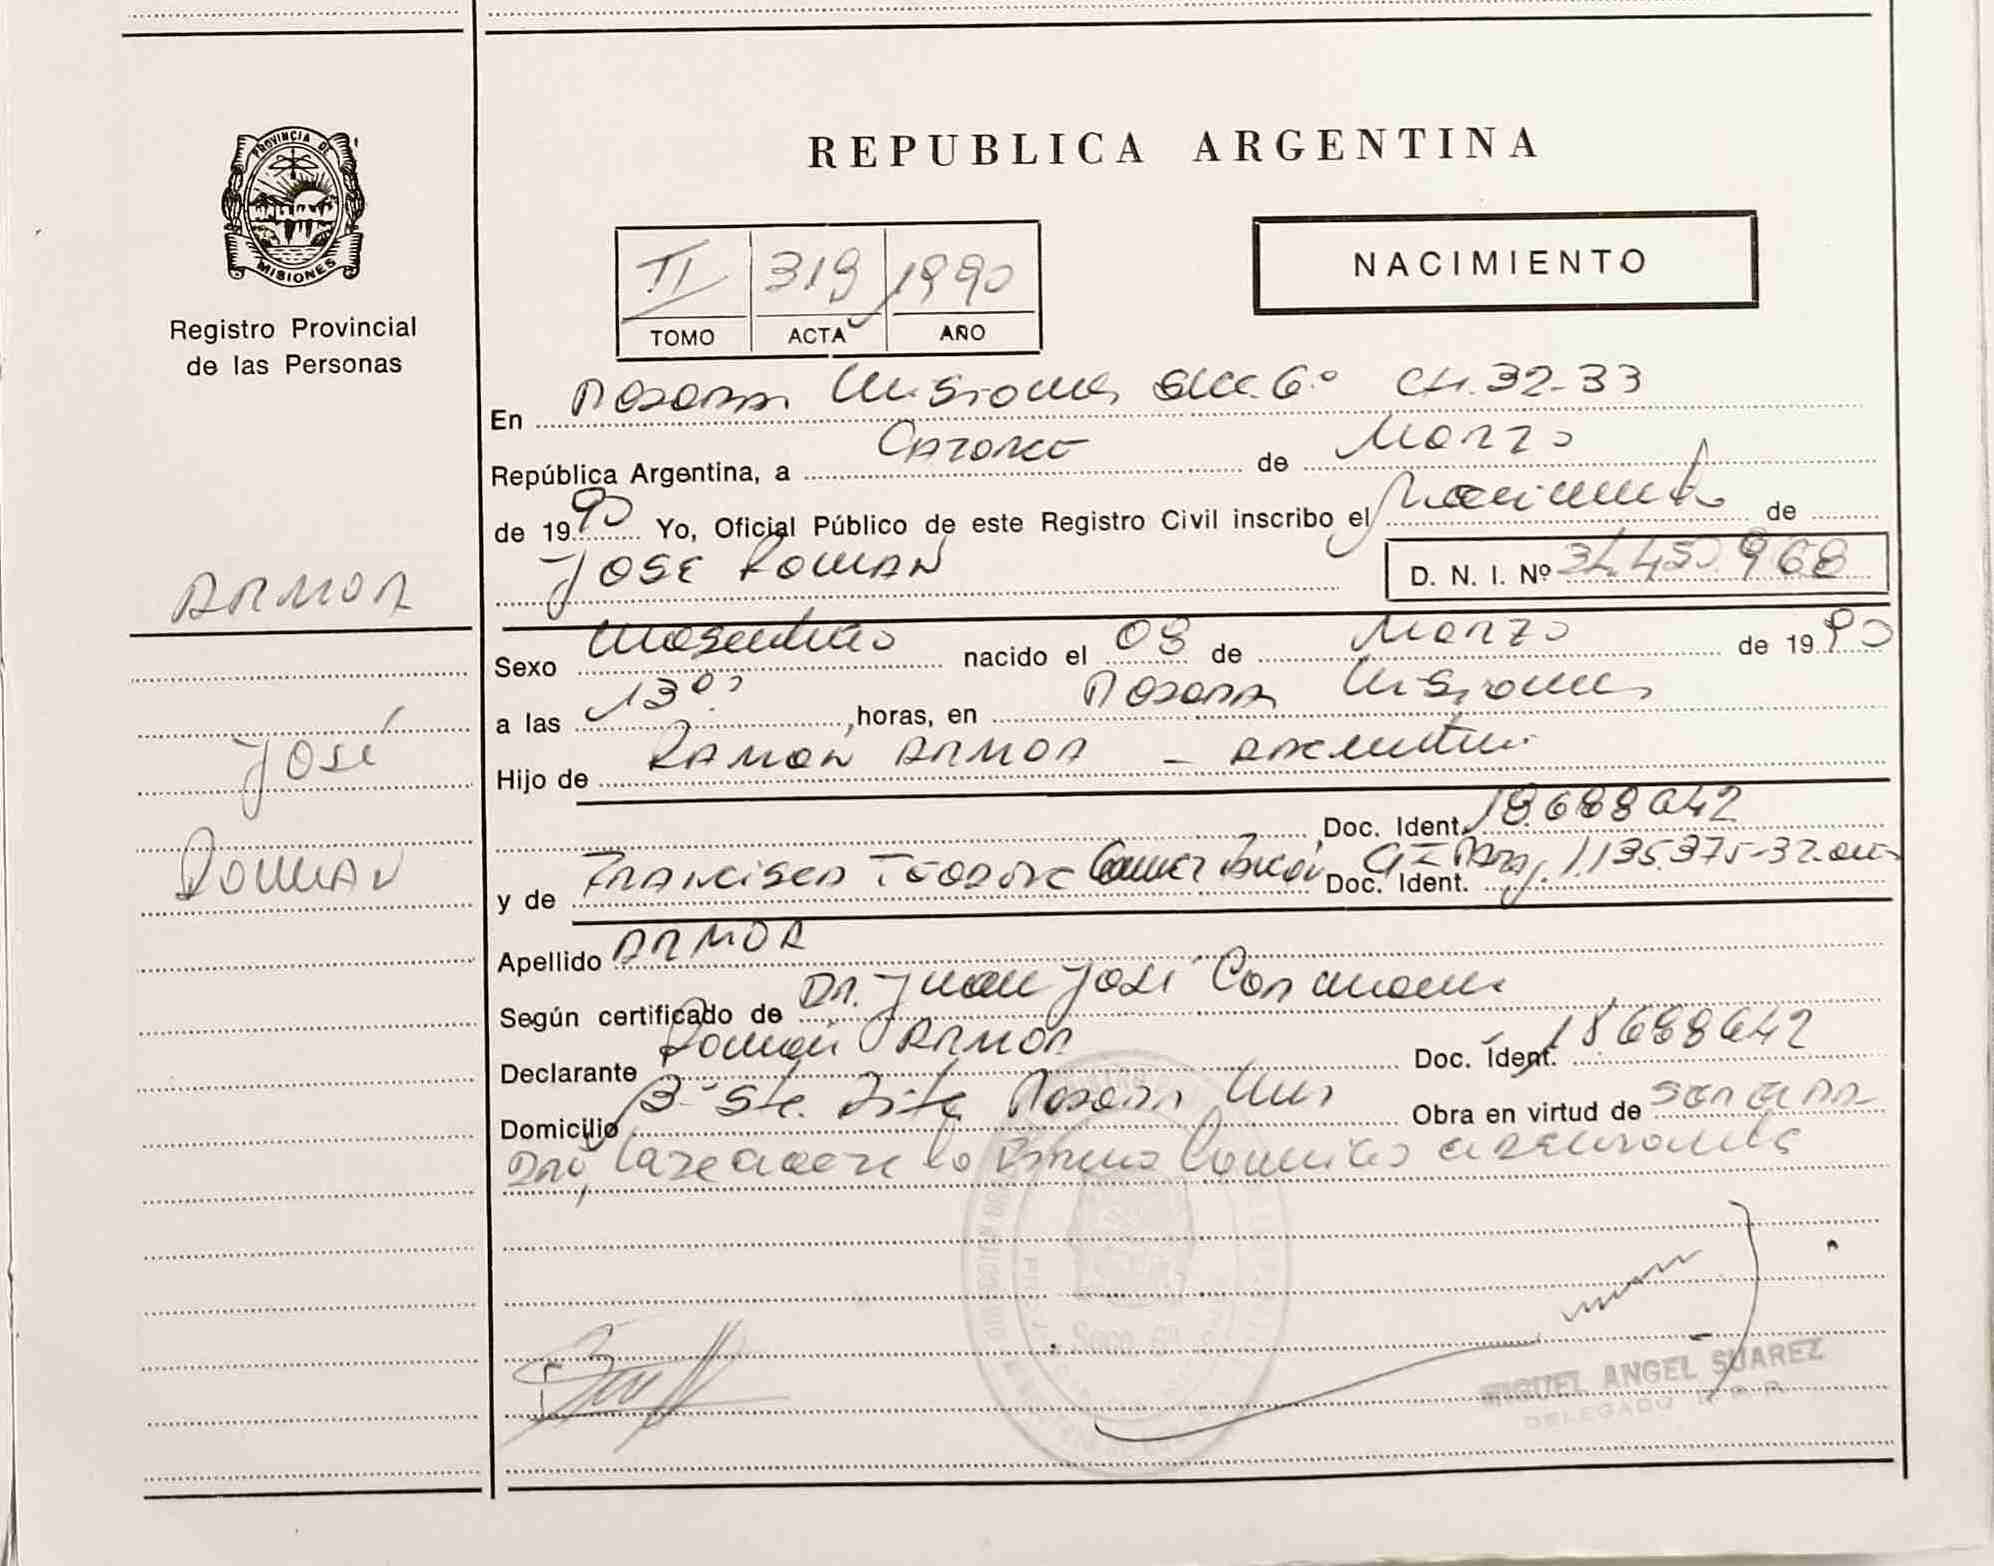 PROVINCIA DE
MISIONES
Registro Provincial
de las Personas
REPUBLICA ARGENTINA
II 319 1990
TOMO ACTA AÑO
NACIMIENTO
En Posadas Misiones Secc. 6º CH. 32-33
República Argentina, a Catorce de Marzo
de 1990 Yo, Oficial Público de este Registro Civil inscribo el Nacimiento de
JOSE ROMAN D. N. I. Nº 34.450.968
ARMOA
Sexo Masculino nacido el 08 de Marzo de 1990
a las 13 00 horas, en Posadas Misiones
Hijo de RAMON ARMOA - Argentino
José
Doc. Ident. 18.688.642
ROMAN
y de FRANCISCA Doc. Ident. 1.135.375-32
Apellido ARMOA
Según certificado de Dr. Juan José
Declarante Ramón ARMOA Doc. Ident. 18688642
Domicilio Bº Sta. Rita Posadas Mns Obra en virtud de
lo
MIGUEL ANGEL SUAREZ
DELEGADO R.P.P.